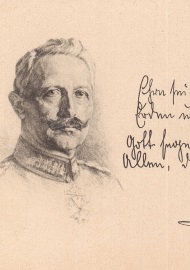 Ehre sei
Erden u
Gott segne
Allen, d